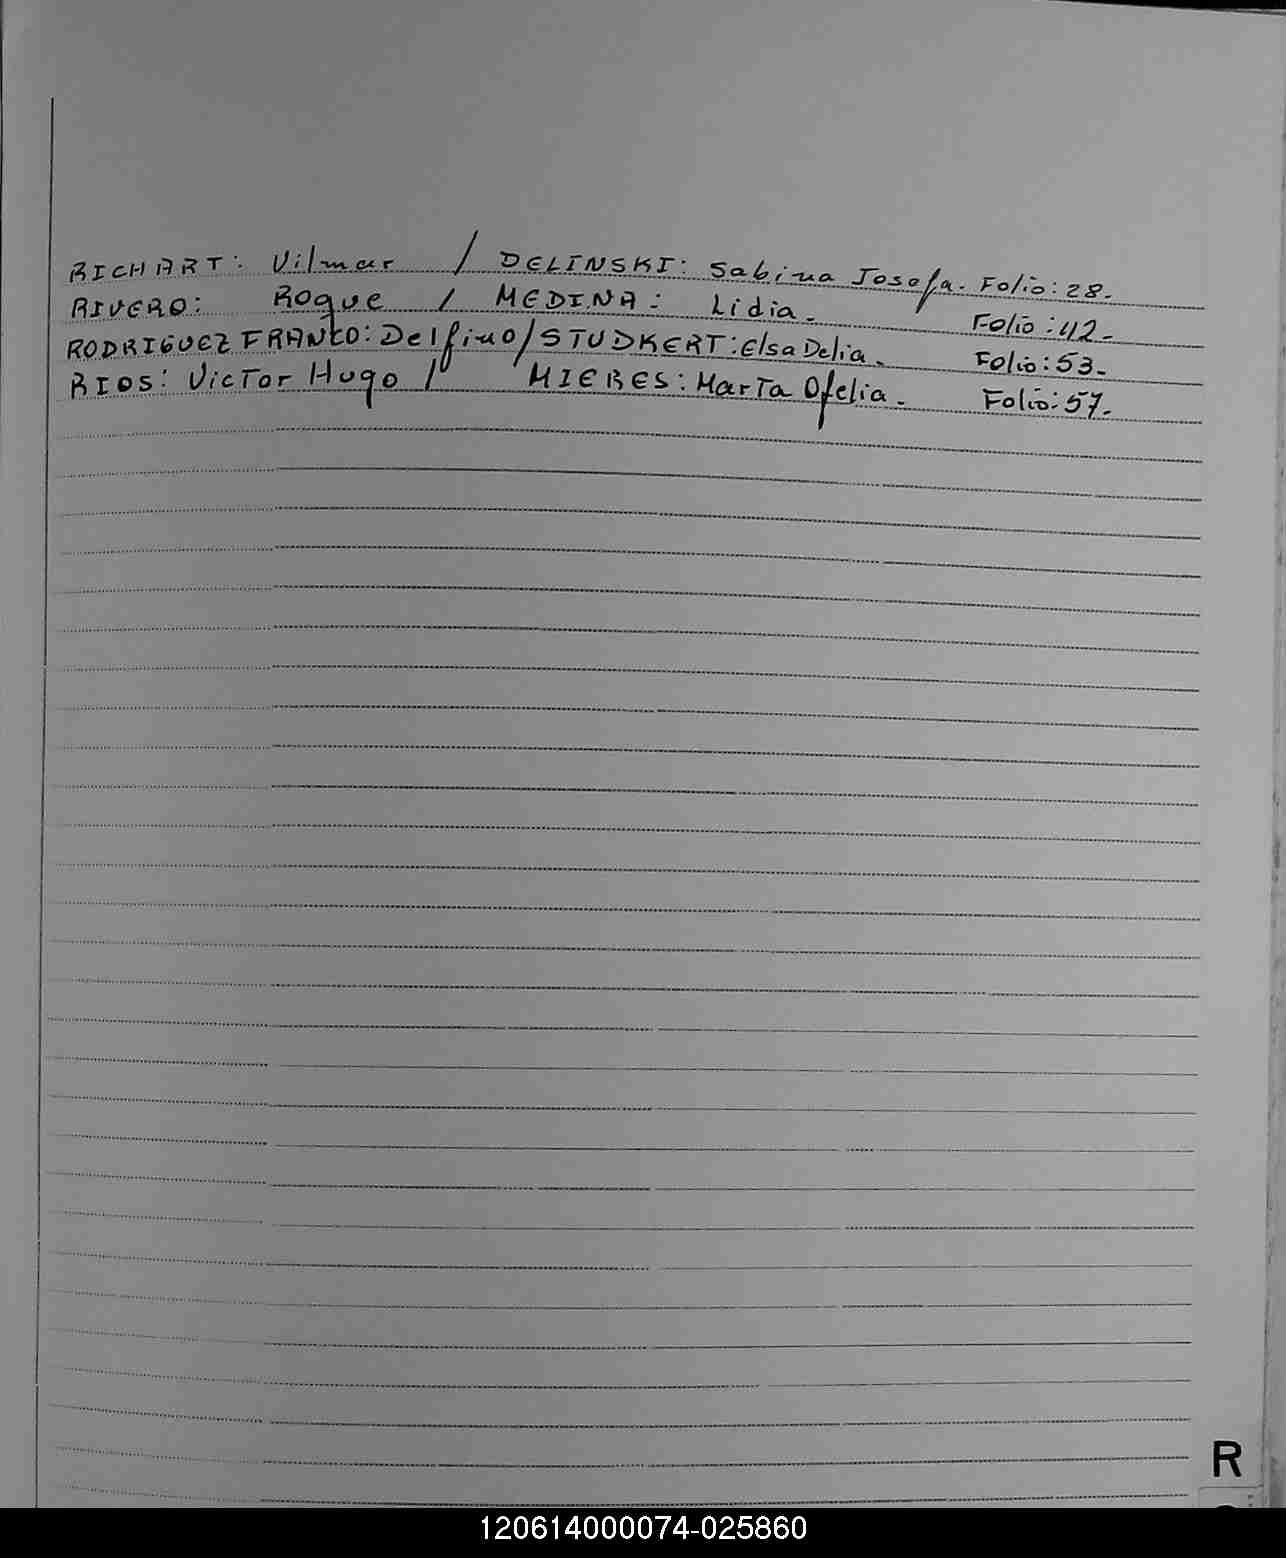 RICHART: Vilmar / DELINSKI: Sabina Josefa. Folio: 28.-
RIVERO: Roque / MEDINA: Lidia.- Folio: 42.-
RODRIGUEZ FRANCO: Delfino / STUDKERT: Elsa Delia.- Folio: 53.-
RIOS: Victor Hugo / MIERES: Marta Ofelia.- Folio: 57.-
R
120614000074-025860